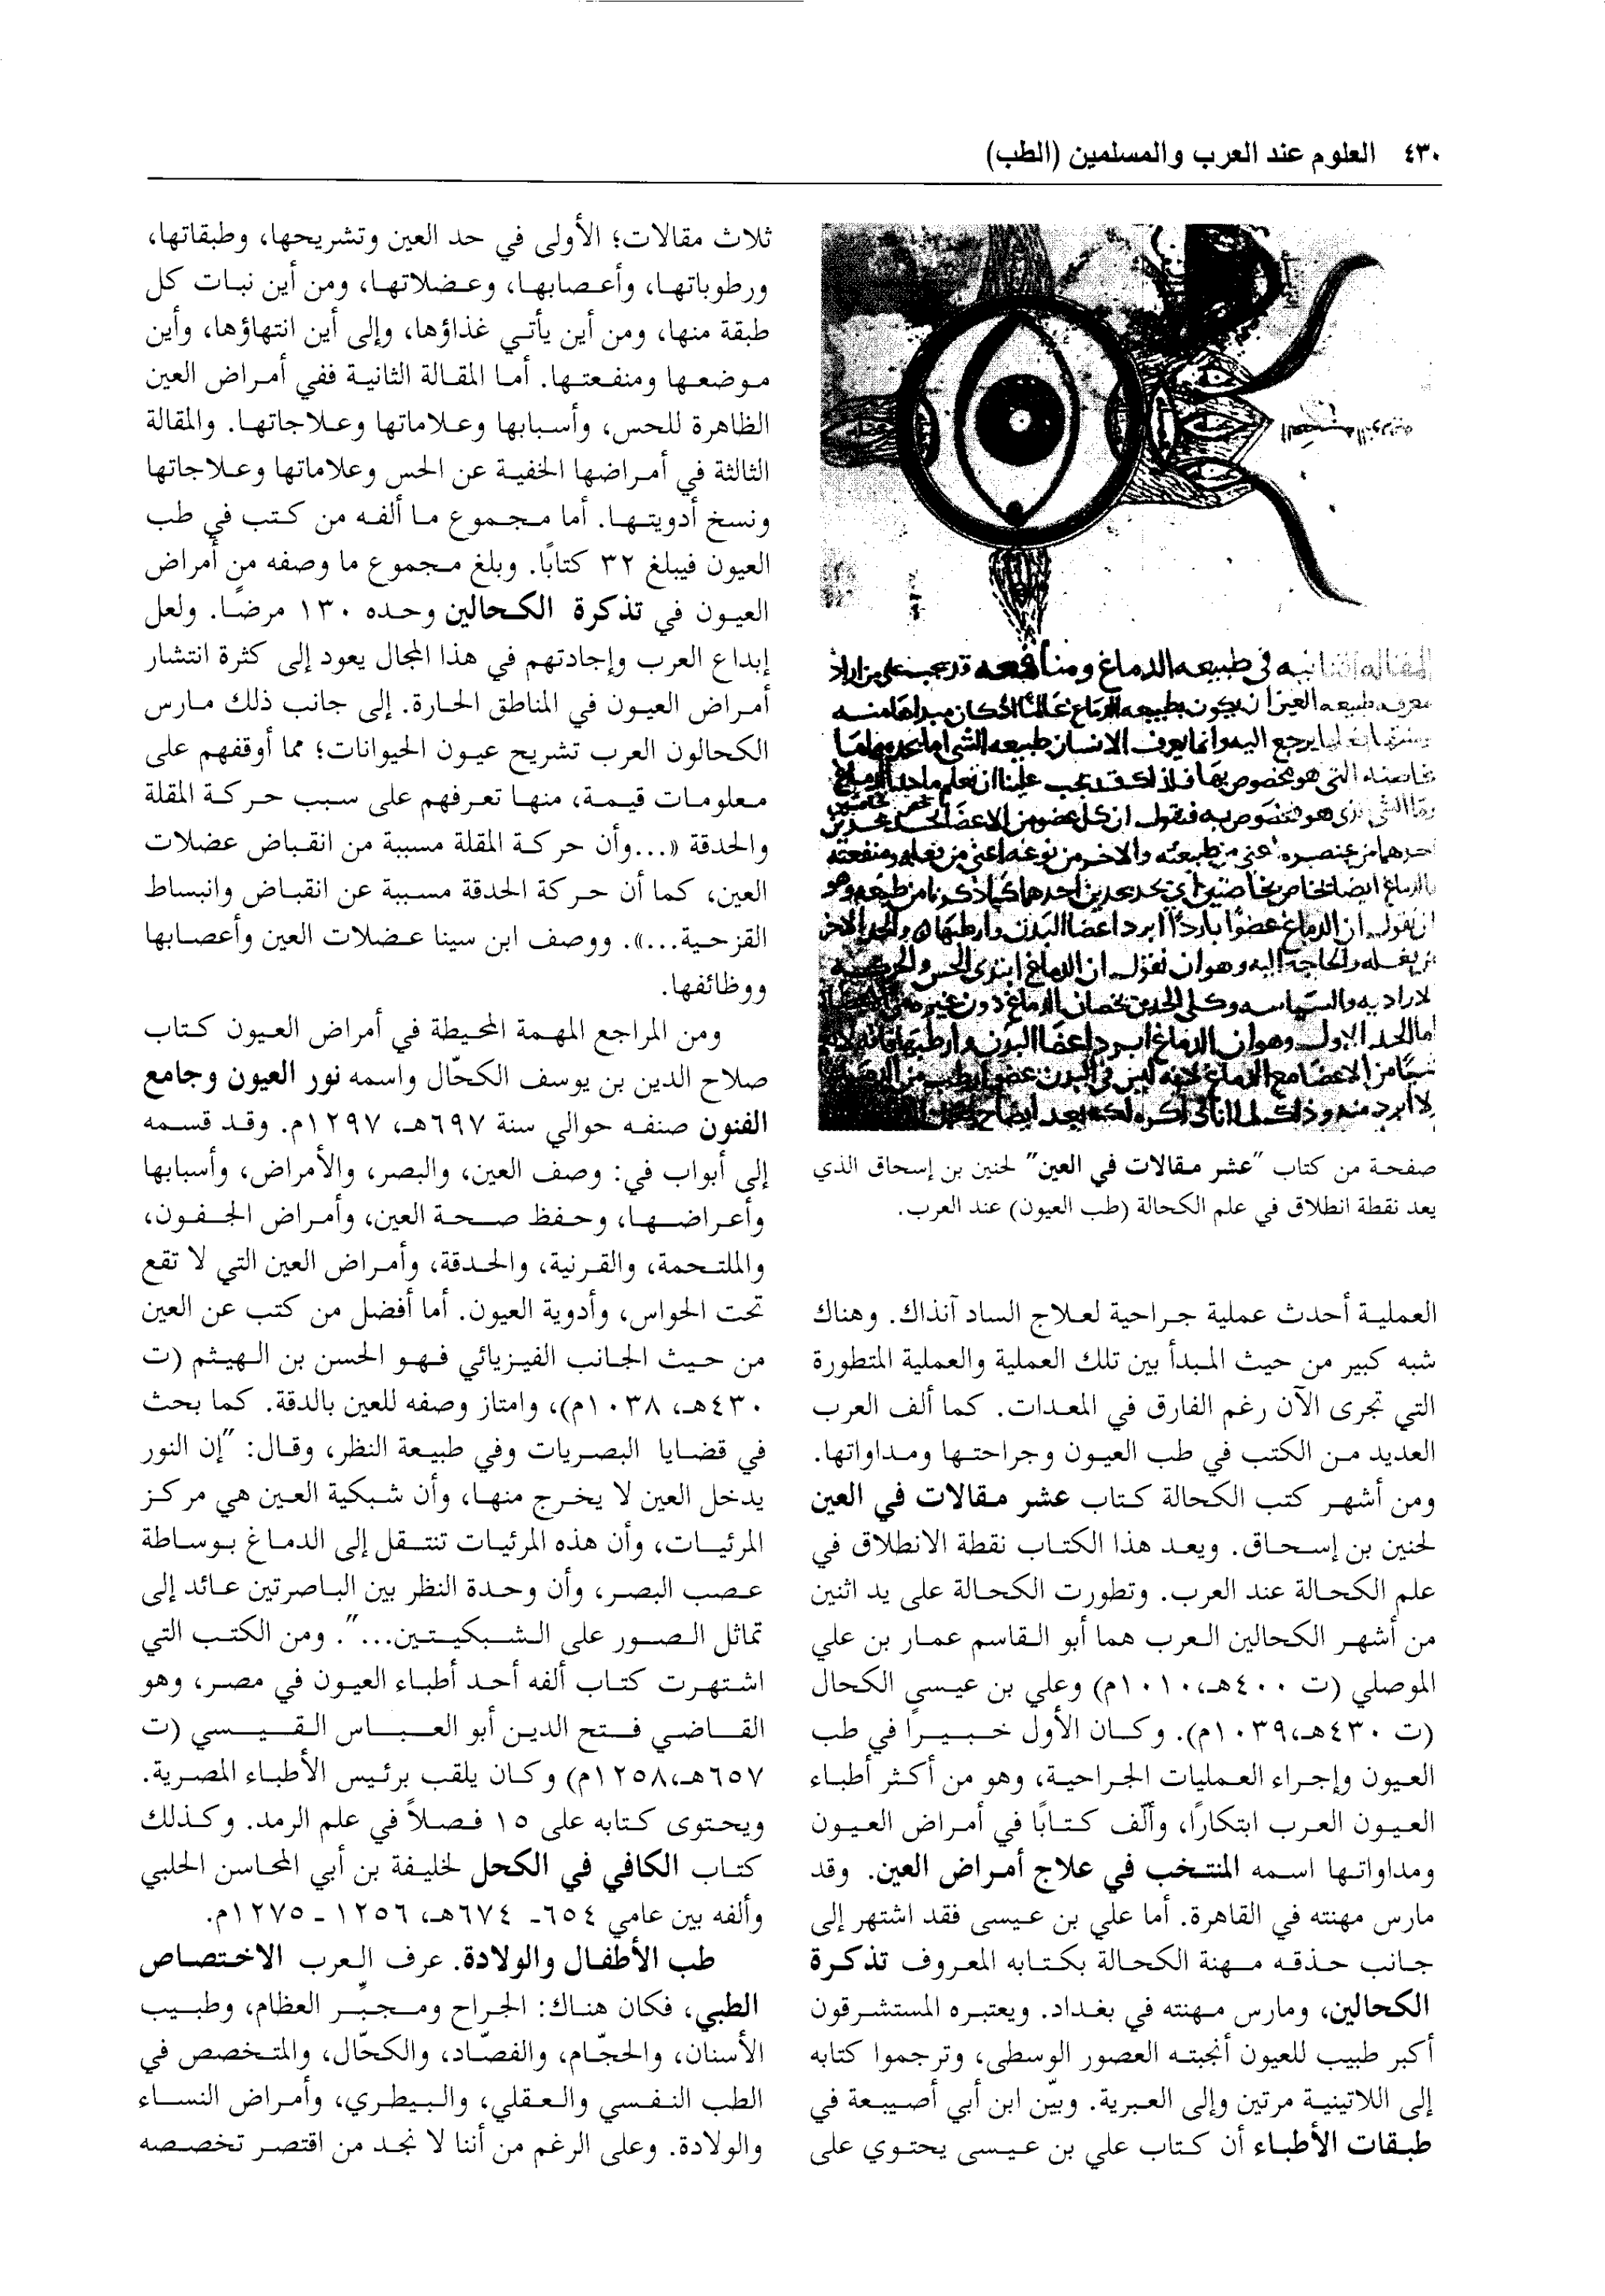 ٤٣٠ العلوم عند العرب والمسلمين (الطب)
المقالة الثانيه في طبيعه الدماغ ومنافعه قد يجب على من اراد
معرفه طبيعه العين ان يكون بطبيعه الدماغ عالمًا اذ كان مبداها منه
يرجع اليه وانما يعرف الانسان طبيعه الشي اما بحده واما
بخاصته التي هو مخصوص بها فلذلك قد يجب علينا ان نعلم ما حد الدماغ
وما الشي الذي هو مخصوص به فنقول ان كل عضو من الاعضا
احدهما من عنصره اعني من طبيعته والاخر من نوعه اعني من فعله ومنفعته
ان نقول ان الدماغ عضوًا باردًا ابرد اعضا البدن وارطبها والحد الاخر
من فعله والحاجة اليه وهو ان نقول ان الدماغ ابتدى الحس والحركة
الاراديه والسياسه وكلى الحدين يخصان الدماغ دون غيره
اما الحد الاول وهو ان الدماغ ابرد اعضا البدن وارطبها
صفحة من كتاب "عشر مقالات في العين" لحنين بن إسحاق الذي
يعد نقطة انطلاق في علم الكحالة (طب العيون) عند العرب.
العملية أحدث عملية جراحية لعلاج الساد آنذاك. وهناك
شبه كبير من حيث المبدأ بين تلك العملية والعملية المتطورة
التي تجرى الآن رغم الفارق في المعدات. كما ألف العرب
العديد من الكتب في طب العيون وجراحتها ومداواتها.
ومن أشهر كتب الكحالة كتاب عشر مقالات في العين
لحنين بن إسحاق. ويعد هذا الكتاب نقطة الانطلاق في
علم الكحالة عند العرب. وتطورت الكحالة على يد اثنين
من أشهر الكحالين العرب هما أبو القاسم عمار بن علي
الموصلي (ت ٤٠٠هـ،١٠١٠م) وعلي بن عيسى الكحال
(ت ٤٣٠هـ،١٠٣٩م). وكان الأول خبيرًا في طب
العيون وإجراء العمليات الجراحية، وهو من أكثر أطباء
العيون العرب ابتكارًا، وألّف كتابًا في أمراض العيون
ومداواتها اسمه المنتخب في علاج أمراض العين. وقد
مارس مهنته في القاهرة. أما علي بن عيسى فقد اشتهر إلى
جانب حذقه مهنة الكحالة بكتابه المعروف تذكرة
الكحالين، ومارس مهنته في بغداد. ويعتبره المستشرقون
أكبر طبيب للعيون أنجبته العصور الوسطى، وترجموا كتابه
إلى اللاتينية مرتين وإلى العبرية. وبيّن ابن أبي أصيبعة في
طبقات الأطباء أن كتاب علي بن عيسى يحتوي على
ثلاث مقالات؛ الأولى في حد العين وتشريحها، وطبقاتها،
ورطوباتها، وأعصابها، وعضلاتها، ومن أين نبات كل
طبقة منها، ومن أين يأتي غذاؤها، وإلى أين انتهاؤها، وأين
موضعها ومنفعتها. أما المقالة الثانية ففي أمراض العين
الظاهرة للحس، وأسبابها وعلاماتها وعلاجاتها. والمقالة
الثالثة في أمراضها الخفية عن الحس وعلاماتها وعلاجاتها
ونسخ أدويتها. أما مجموع ما ألفه من كتب في طب
العيون فيبلغ ٣٢ كتابًا. وبلغ مجموع ما وصفه من أمراض
العيون في تذكرة الكحالين وحده ١٣٠ مرضًا. ولعل
إبداع العرب وإجادتهم في هذا المجال يعود إلى كثرة انتشار
أمراض العيون في المناطق الحارة. إلى جانب ذلك مارس
الكحالون العرب تشريح عيون الحيوانات؛ مما أوقفهم على
معلومات قيمة، منها تعرفهم على سبب حركة المقلة
والحدقة «...وأن حركة المقلة مسببة من انقباض عضلات
العين، كما أن حركة الحدقة مسببة عن انقباض وانبساط
القزحية...». ووصف ابن سينا عضلات العين وأعصابها
ووظائفها.
ومن المراجع المهمة المحيطة في أمراض العيون كتاب
صلاح الدين بن يوسف الكحّال واسمه نور العيون وجامع
الفنون صنفه حوالي سنة ٦٩٧هـ، ١٢٩٧م. وقد قسمه
إلى أبواب في: وصف العين، والبصر، والأمراض، وأسبابها
وأعراضها، وحفظ صحة العين، وأمراض الجفون،
والملتحمة، والقرنية، والحدقة، وأمراض العين التي لا تقع
تحت الحواس، وأدوية العيون. أما أفضل من كتب عن العين
من حيث الجانب الفيزيائي فهو الحسن بن الهيثم (ت
٤٣٠هـ، ١٠٣٨م)، وامتاز وصفه للعين بالدقة. كما بحث
في قضايا البصريات وفي طبيعة النظر، وقال: "إن النور
يدخل العين لا يخرج منها، وأن شبكية العين هي مركز
المرئيات، وأن هذه المرئيات تنتقل إلى الدماغ بوساطة
عصب البصر، وأن وحدة النظر بين الباصرتين عائد إلى
تماثل الصور على الشبكيتين...". ومن الكتب التي
اشتهرت كتاب ألفه أحد أطباء العيون في مصر، وهو
القاضي فتح الدين أبو العباس القيسي (ت
٦٥٧هـ،١٢٥٨م) وكان يلقب برئيس الأطباء المصرية.
ويحتوى كتابه على ١٥ فصلاً في علم الرمد. وكذلك
كتاب الكافي في الكحل لخليفة بن أبي المحاسن الحلبي
وألفه بين عامي ٦٥٤- ٦٧٤هـ، ١٢٥٦ - ١٢٧٥م.
طب الأطفال والولادة. عرف العرب الاختصاص
الطبي، فكان هناك: الجراح ومجبِّر العظام، وطبيب
الأسنان، والحجّام، والفصّاد، والكحّال، والمتخصص في
الطب النفسي والعقلي، والبيطري، وأمراض النساء
والولادة. وعلى الرغم من أننا لا نجد من اقتصر تخصصه